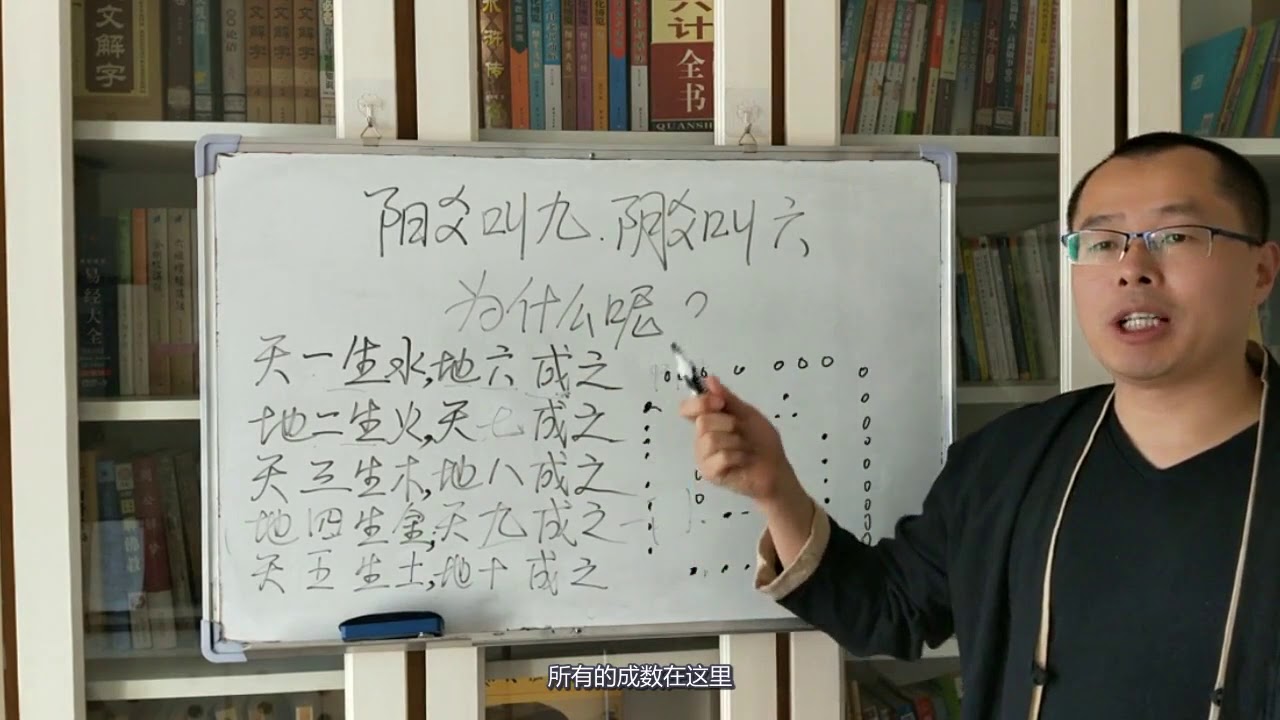 文解字
论语
文解字
水浒传
六计
全书
QUANSH
易经大全
阳爻叫九.阴爻叫六
为什么呢?
天一生水,地六成之
地二生火,天七成之
天三生木,地八成之
地四生金,天九成之
天五生土,地十成之
所有的成数在这里